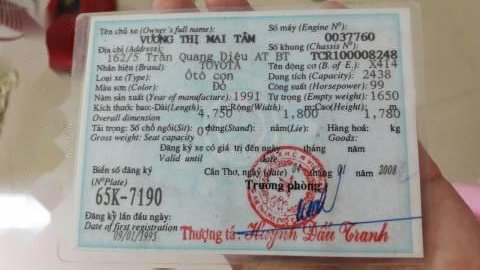 Tên chủ xe (Owner's full name): Số máy (Engine N°):
VƯƠNG THỊ MAI TÂM 0037760
Địa chỉ (Address): Số khung (Chassis N°):
162/5 Trần Quang Diệu AT BT TCR100008248
Nhãn hiệu (Brand): TOYOTA Tên động cơ (B. of E.) X414
Loại xe (Type): Ôtô con Dung tích (Capacity): 2438
Màu sơn (Color): Đỏ Công suất (Horsepower): 99
Năm sản xuất (Year of manufacture): 1991 Tự trọng (Empty weight): 1650
Kích thước bao: Dài(Length), m: Rộng(Width), m: Cao(Height), m:
Overall dimension 4,750 1,800 1,780
Tải trọng: Số chỗ ngồi(Sit): đứng(Stand): nằm(Lie): Hàng hoá: kg
Gross weight: Seat capacity Goods:
Đăng ký xe có giá trị đến ngày tháng năm
Valid until date
Biển số đăng ký Cần Thơ, ngày tháng 01 năm 2008
(N° Plate) date
65K-7190 Trưởng phòng
Đăng ký lần đầu ngày:
Date of first registration
09/01/1995 Thượng tá: Huỳnh Đấu Tranh